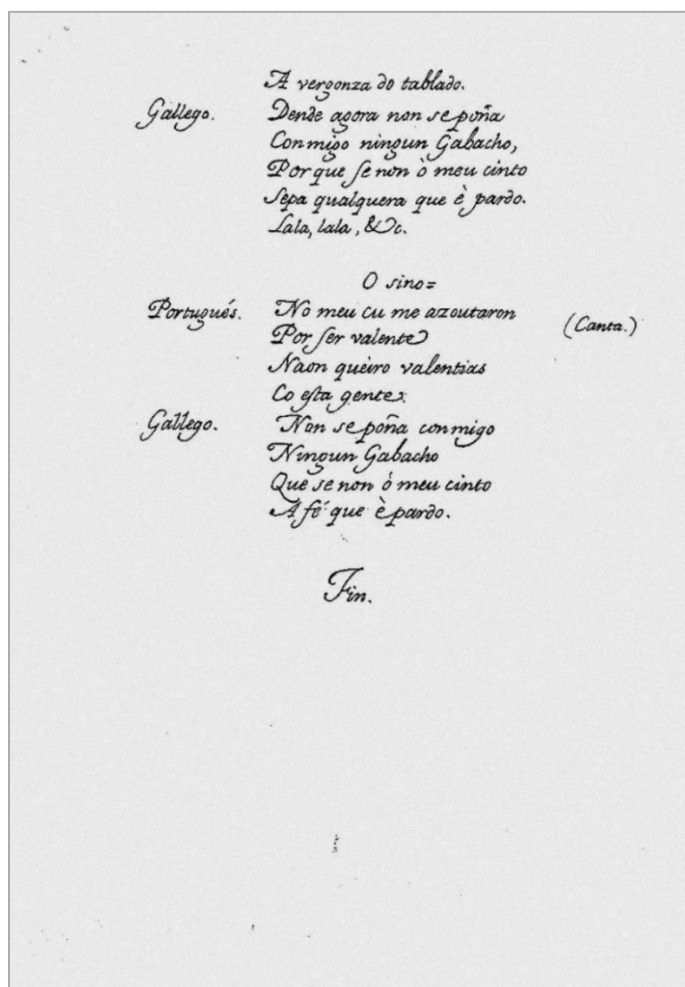 A vergonza do tablado.
Gallego. Dende agora non se poña
Conmigo ningun Gabacho,
Por que se non ò meu cinto
Sepa qualquera que è pardo.
Lala, lala, &c.
O sino=
Portugués. No meu cu me azoutaron (Canta.)
Por ser valente
Naon queiro valentias
Co esta gente.
Gallego. Non se poña conmigo
Ningun Gabacho
Que se non ó meu cinto
A fé que è pardo.
Fin.